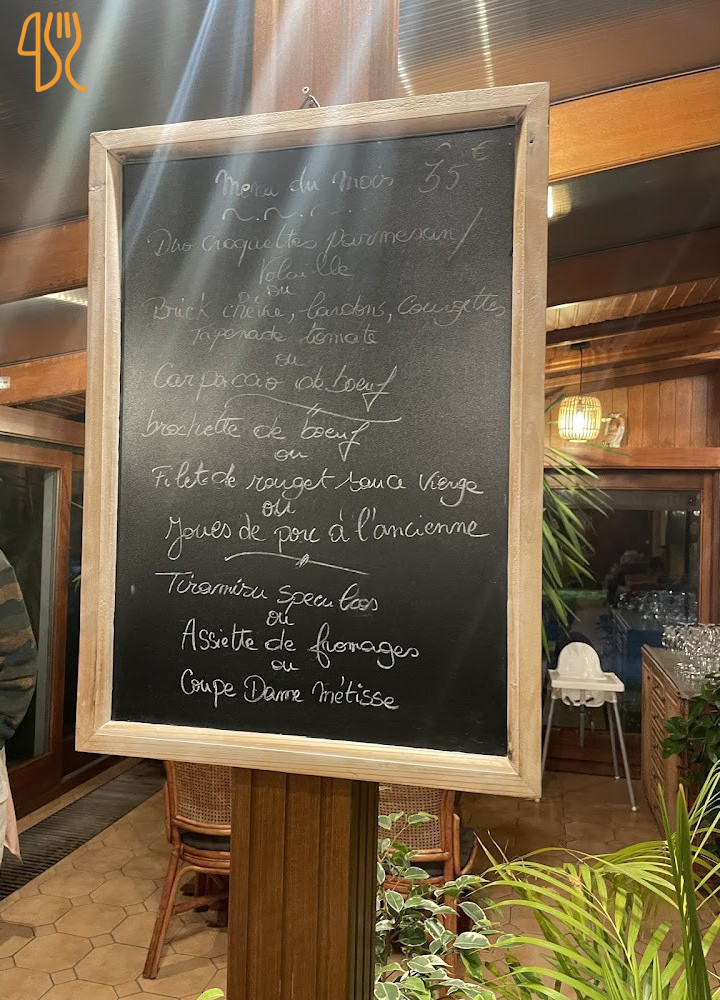 Menu du Mois 35 €
Duo croquettes parmesan/
Volaille
ou
Brick chèvre, lardons, Courgettes
Tapenade tomate
ou
Carpaccio de boeuf
brochette de boeuf
ou
Filet de rouget sauce vierge
ou
Joues de porc à l'ancienne
Tiramisu speculoos
ou
Assiette de fromages
ou
Coupe Dame Métisse